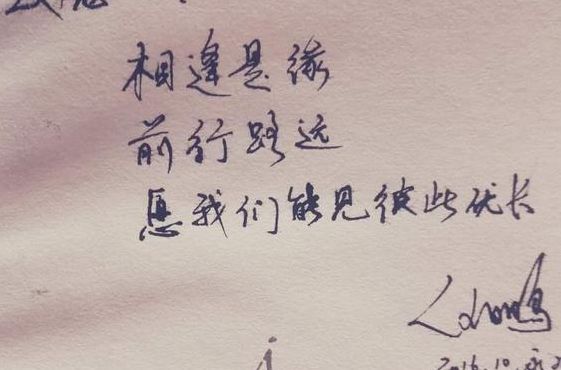 相逢是缘
前行路远
愿我们能见彼此优长
2016.10